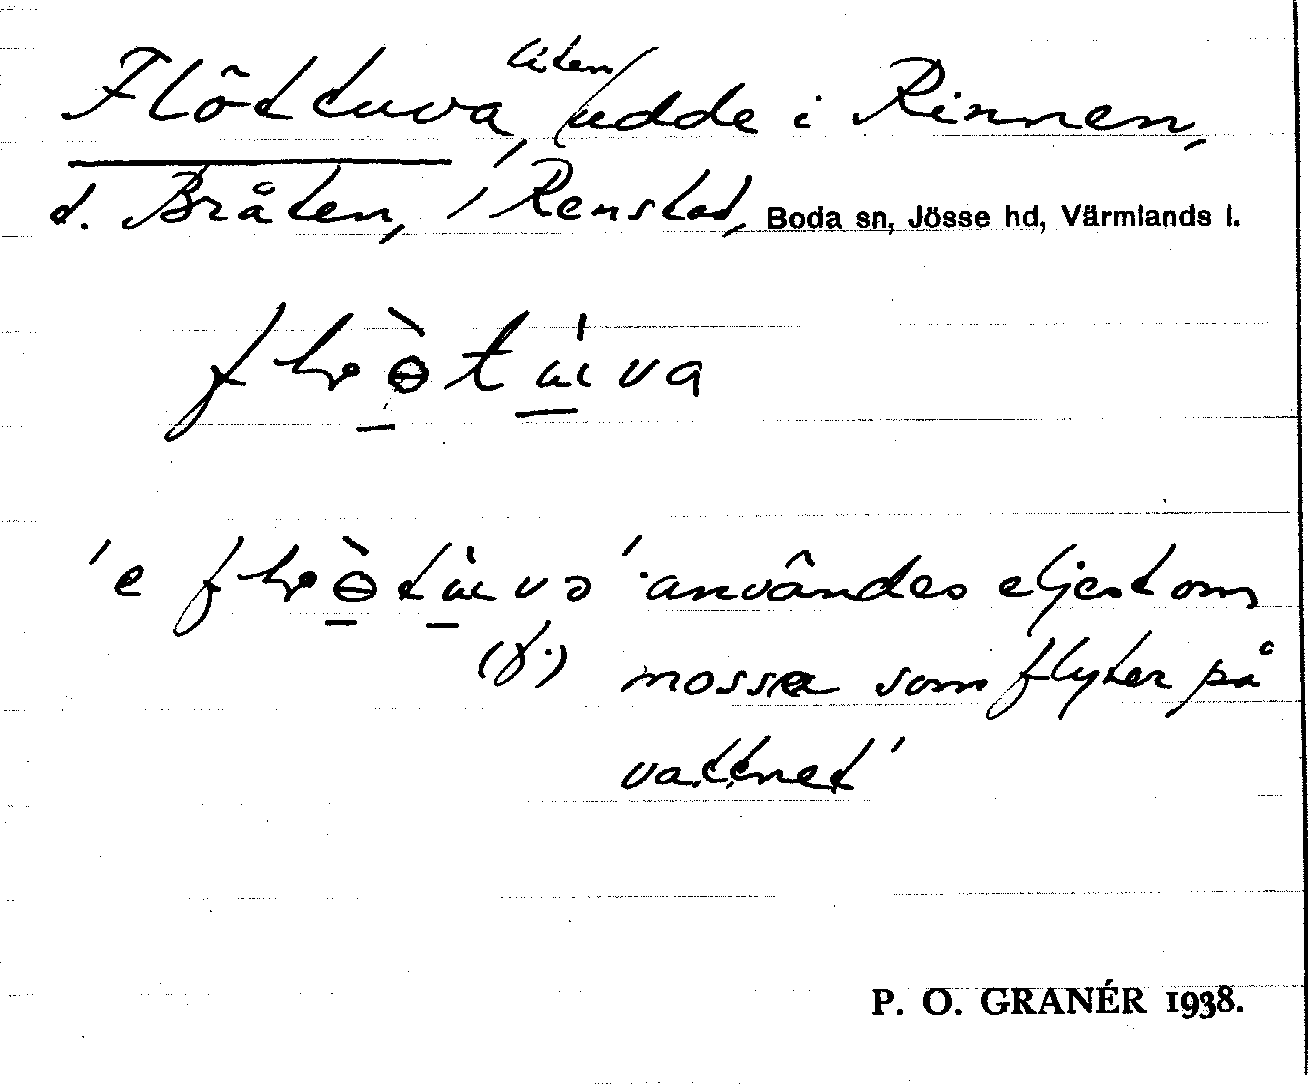 Flöttuva, liten udde i Rinnen,
d. Bråten, / Renstad, Boda sn, Jösse hd, Värmlands l.
'e
'användes eljest om
(f.) mossa som flyter på
vattnet'
P. O. GRANÉR 1938.